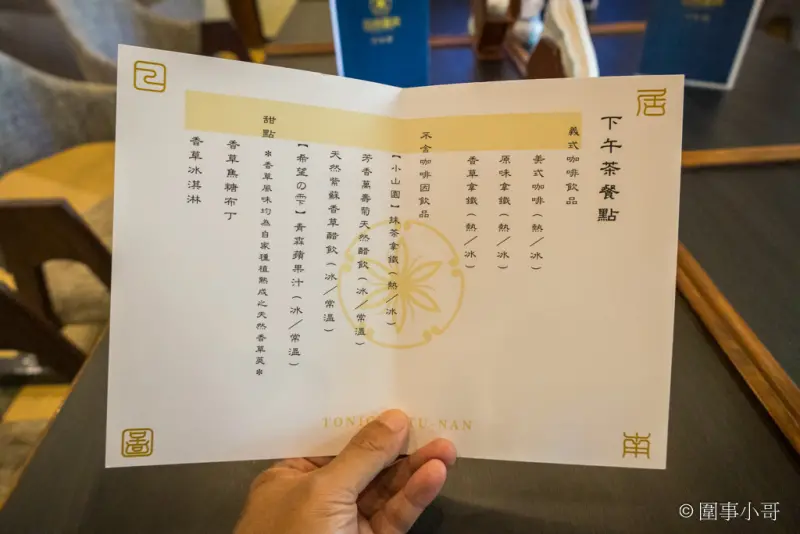 下午茶餐點
義式咖啡飲品
美式咖啡(熱/冰)
原味拿鐵(熱/冰)
香草拿鐵(熱/冰)
不含咖啡因飲品
【小山園】抹茶拿鐵(熱/冰)
芳香萬壽菊天然醋飲(冰/常溫)
天然紫蘇香草醋飲(冰/常溫)
【希望の雫】青森蘋果汁(冰/常溫)
甜點
*香草風味均為自家種植熟成之天然香草莢*
香草焦糖布丁
香草冰淇淋
居
南
© 圍事小哥